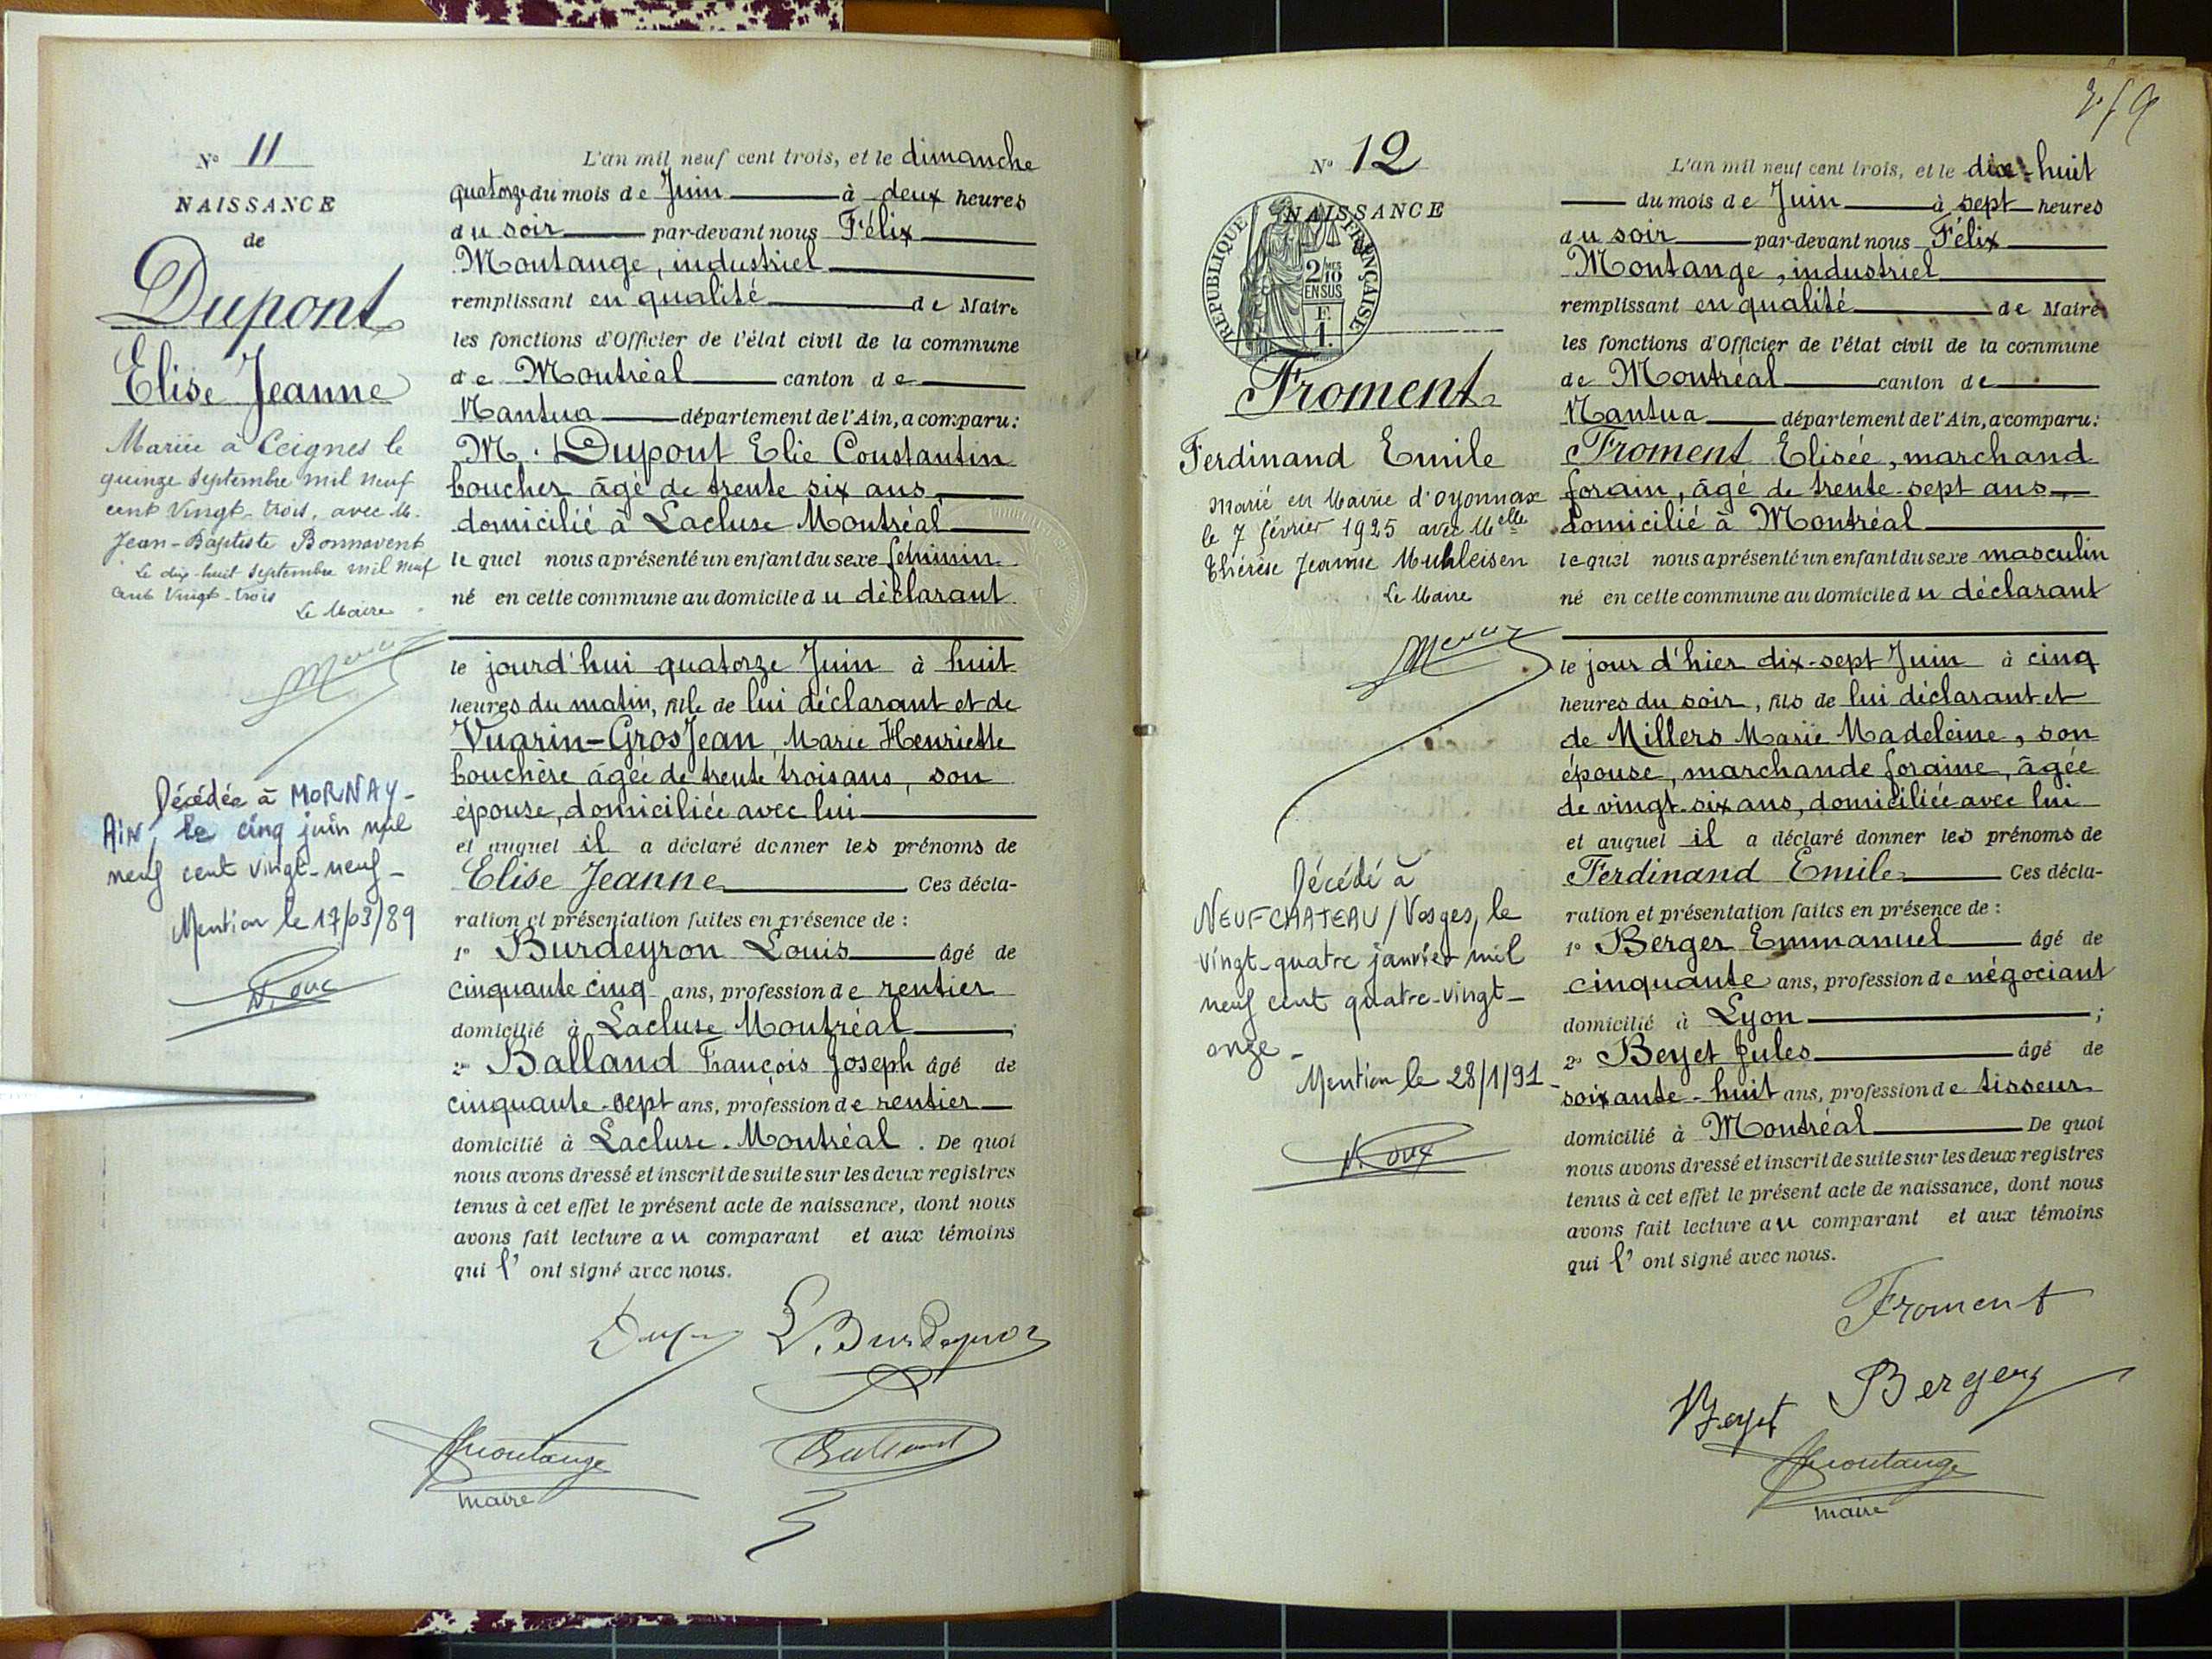 N° 11
NAISSANCE
de
Dupont
Elise Jeanne
Mariée à Ceignes le
quinze Septembre mil neuf
cent Vingt-trois, avec M.
Jean-Baptiste Bonnavent
Le dix-huit Septembre mil neuf
cent Vingt-trois
Le Maire
Décédée à MORNAY-
AIN, le cinq juin mil
neuf cent vingt-neuf-
Mention le 17/03/89
L'an mil neuf cent trois, et le dimanche
quatorze du mois de Juin à deux heures
du soir par-devant nous Félix
Montange, industriel
remplissant en qualité de Maire
les fonctions d'Officier de l'état civil de la commune
de Montréal canton de
Nantua département de l'Ain, a comparu:
M. Dupont Elie Constantin
boucher âgé de trente six ans,
domicilié à Lacluse Montréal
lequel nous a présenté un enfant du sexe féminin
né en cette commune au domicile du déclarant
le jourd'hui quatorze Juin à huit
heures du matin, fille de lui déclarant et de
Vuarin-GrosJean, Marie Henriette
bouchère âgée de trente trois ans, son
épouse, domiciliée avec lui
et auquel il a déclaré donner les prénoms de
Elise Jeanne Ces décla-
ration et présentation faites en présence de :
1° Burdeyron Louis âgé de
cinquante cinq ans, profession de rentier
domicilié à Lacluse Montréal ;
2° Balland François Joseph âgé de
cinquante-sept ans, profession de rentier
domicilié à Lacluse-Montréal. De quoi
nous avons dressé et inscrit de suite sur les deux registres
tenus à cet effet le présent acte de naissance, dont nous
avons fait lecture au comparant et aux témoins
qui l' ont signé avec nous.
L. Burdeyron
Montange
Balland
maire
N° 12
NAISSANCE
RÉPUBLIQUE FRANÇAISE
2/10 MES
EN SUS
F.
1.
Froment
Ferdinand Emile
Marié en Mairie d'Oyonnax
le 7 février 1925 avec Melle
Thérèse Jeanne Muhleisen
Le Maire
Décédé à
NEUFCHATEAU/Vosges, le
vingt-quatre janvier mil
neuf cent quatre-vingt-
onze-
Mention le 28/1/91-
L'an mil neuf cent trois, et le dix-huit
du mois de Juin à sept heures
du soir par-devant nous Félix
Montange, industriel
remplissant en qualité de Maire
les fonctions d'Officier de l'état civil de la commune
de Montréal canton de
Nantua département de l'Ain, a comparu:
Froment Elisée, marchand
forain, âgé de trente-sept ans,
domicilié à Montréal
lequel nous a présenté un enfant du sexe masculin
né en cette commune au domicile du déclarant
le jour d'hier dix-sept Juin à cinq
heures du soir, fils de lui déclarant et
de Millers Marie Madeleine, son
épouse, marchande foraine, âgée
de vingt-six ans, domiciliée avec lui
et auquel il a déclaré donner les prénoms de
Ferdinand Emile Ces décla-
ration et présentation faites en présence de :
1° Berger Emmanuel âgé de
cinquante ans, profession de négociant
domicilié à Lyon ;
2° Beyet Jules âgé de
soixante-huit ans, profession de tisseur
domicilié à Montréal De quoi
nous avons dressé et inscrit de suite sur les deux registres
tenus à cet effet le présent acte de naissance, dont nous
avons fait lecture au comparant et aux témoins
qui l' ont signé avec nous.
Froment
Berger
Beyet
Montange
maire